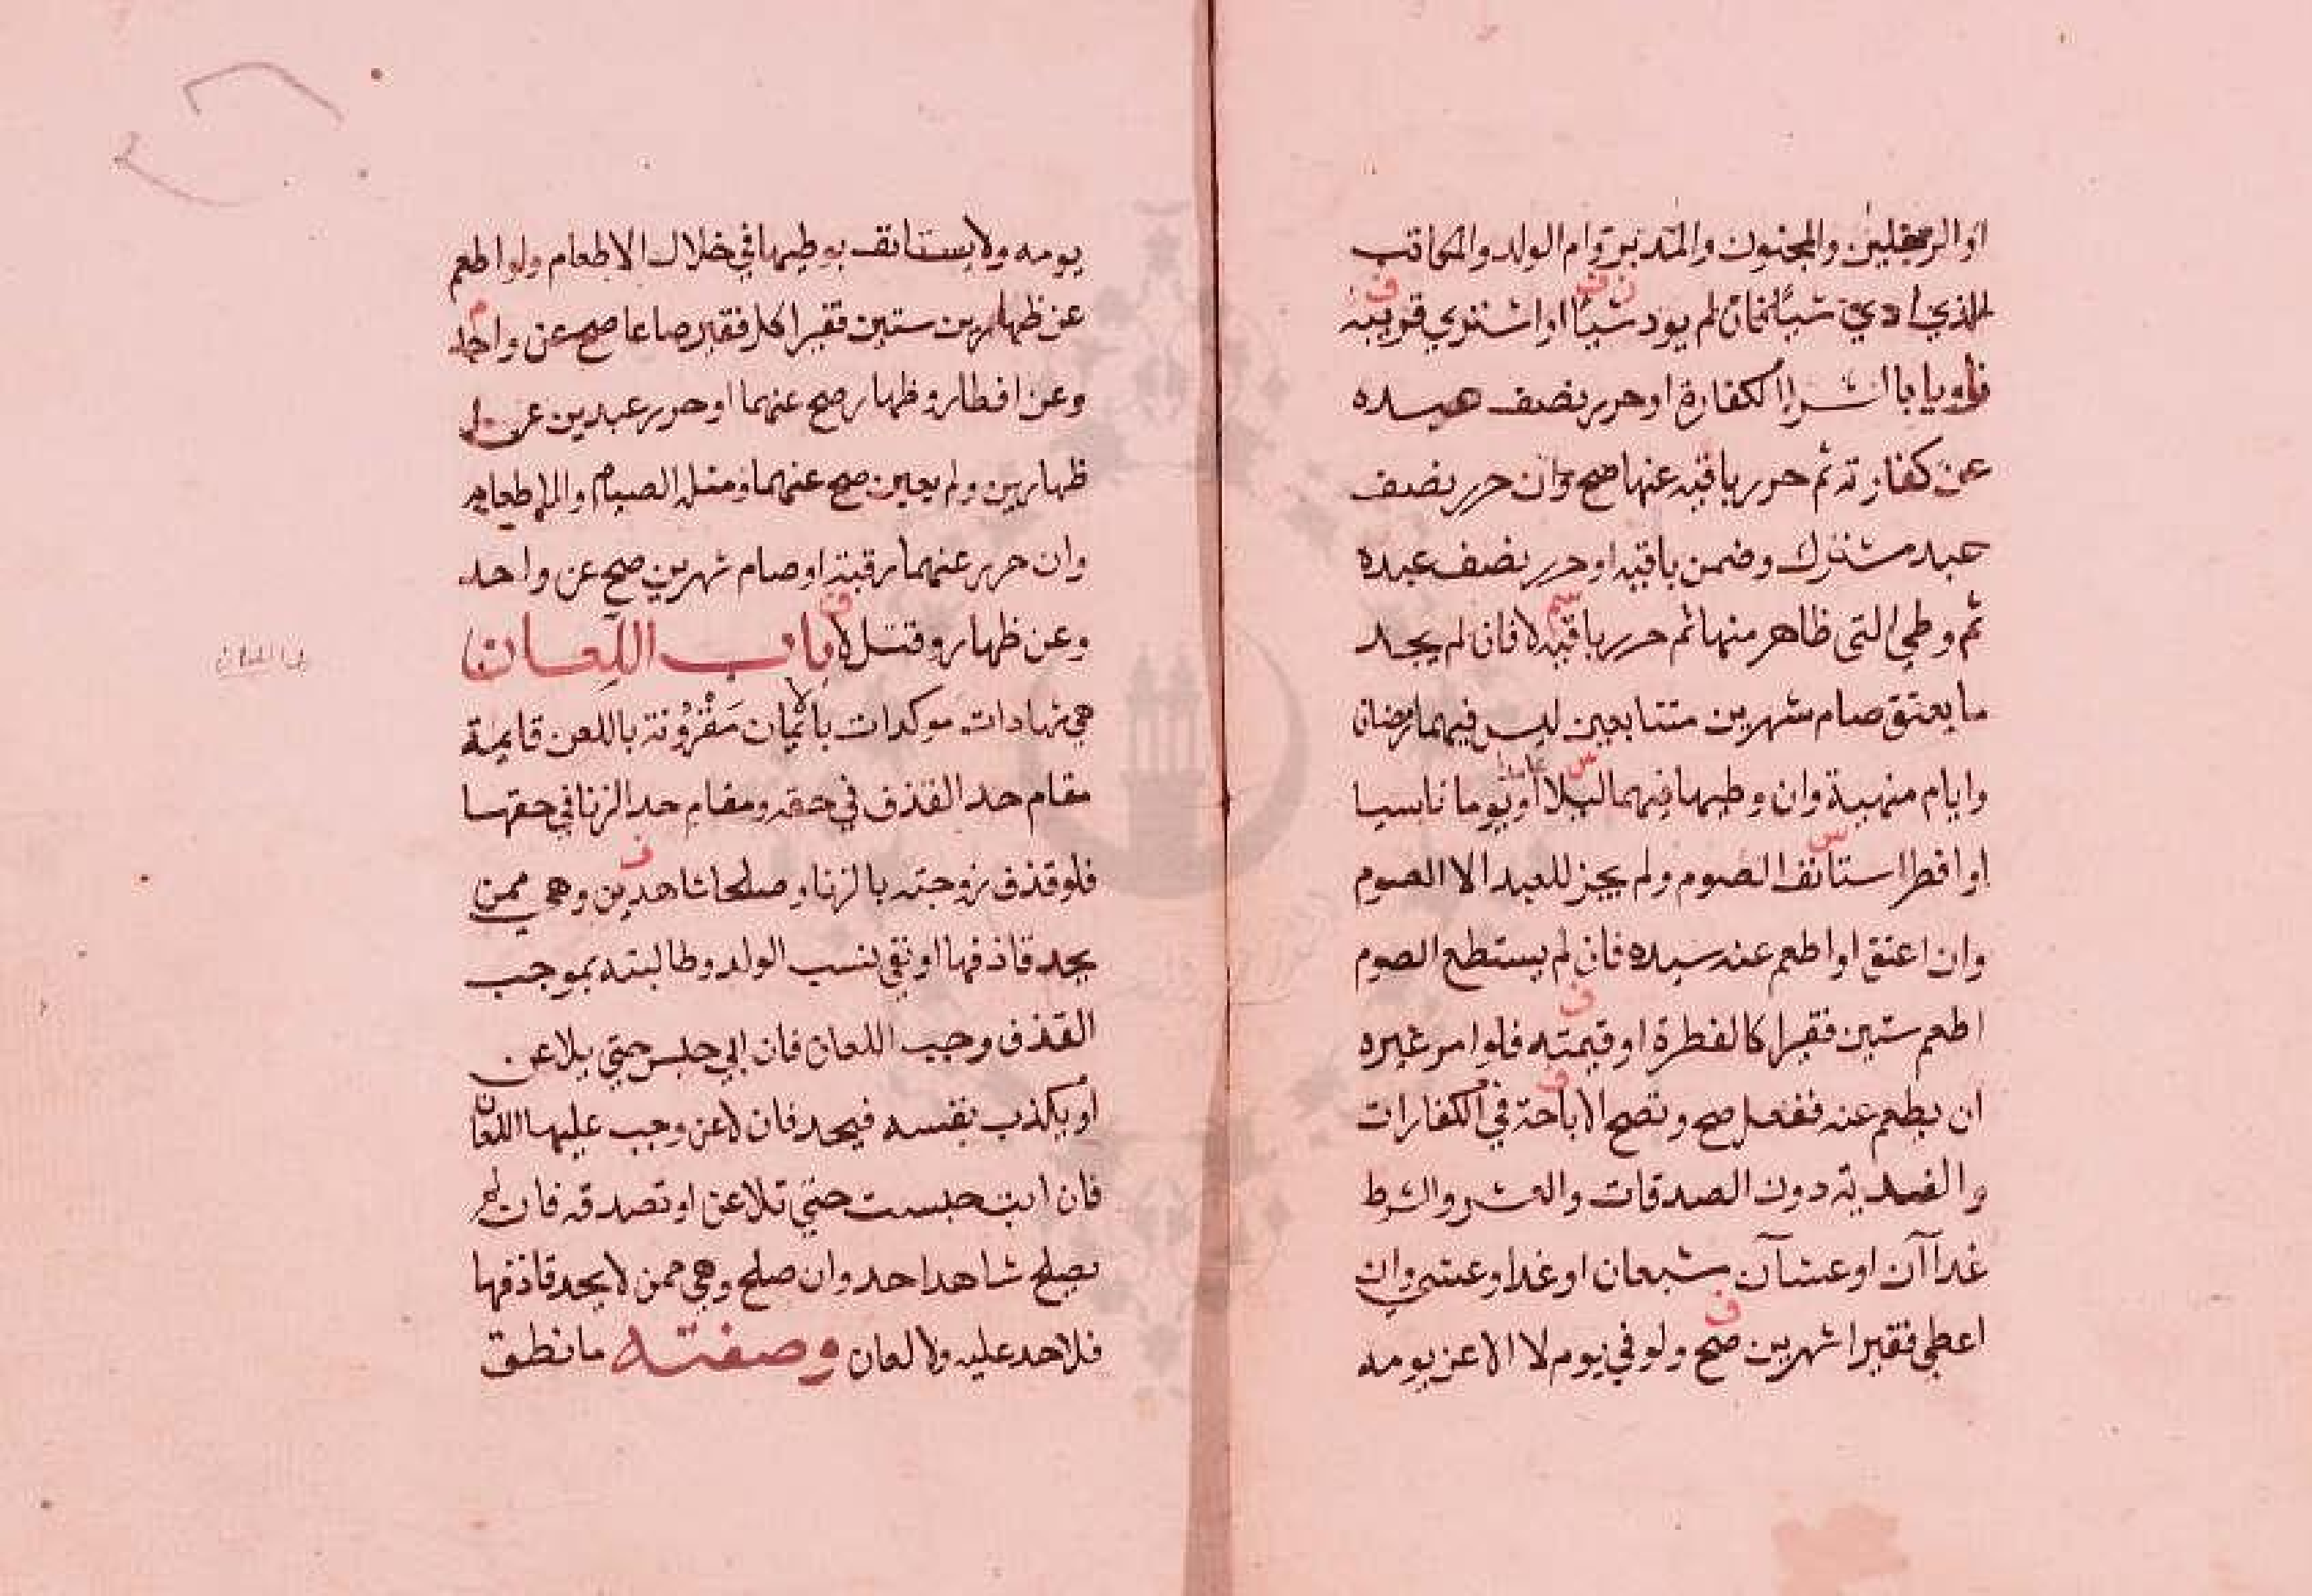 او الرجلين والمجنون والمدبر وام الولد والمكاتب
الذي ادي شيا فان لم يود شيا او اشتري قريبه
ناويا بالشرا الكفارة او حرر نصف عبده
عن كفارته ثم حرر باقيه عنها صح وان حرر نصف
عبد مشترك وضمن باقيه او حرر نصف عبده
ثم وطي التى ظاهر منها ثم حرر باقيه لا فان لم يجد
ما يعتق صام شهرين متتابعين ليس فيهما رمضان
وايام منهية وان وطيها فيهما ليلا او يوما ناسيا
او افطر استانف الصوم ولم يجز للعبد الا الصوم
وان اعتق او اطعم عنه سيده فان لم يستطع الصوم
اطعم ستين فقيرا كالفطرة او قيمته فلو امر غيره
ان يطعم عنه ففعل صح وتصح الاباحة في الكفارات
والفدية دون الصدقات والعشر والشرط
غداآن او عشاآن مشبعان او غدا وعشي وان
اعطي فقيرا شهرين صح ولو في يوم لا الا عن يومه
يومه ولا يستانف بوطيها في خلال الاطعام ولو اطعم
عن ظهارين ستين فقيرا كل فقير صاعا صح عن واحد
وعن افطار وظهار صح عنهما او حرر عبدين عن
ظهارين ولم يعين صح عنهما ومثله الصيام والاطعام
وان حرر عنهما رقبة او صام شهرين صح عن واحد
وعن ظهار وقتل لا باب اللعان
هي شهادات موكدات بالايمان مقرونة باللعن قايمة
مقام حد القذف في حقه ومقام حد الزنا في حقها
فلو قذف زوجته بالزنا وصلحا شاهدين وهي ممن
يحد قاذفها او نفي نسب الولد وطالبته بموجب
القذف وجب اللعان فان ابي حبس حتي يلاعن
او يكذب نفسه فيحد فان لاعن وجب عليها اللعان
فان ابت حبست حتي تلاعن او تصدقه فان لم
يصلح شاهدا حد وان صلح وهي ممن لا يحد قاذفها
فلا حد عليه ولا لعان وصفته ما نطق